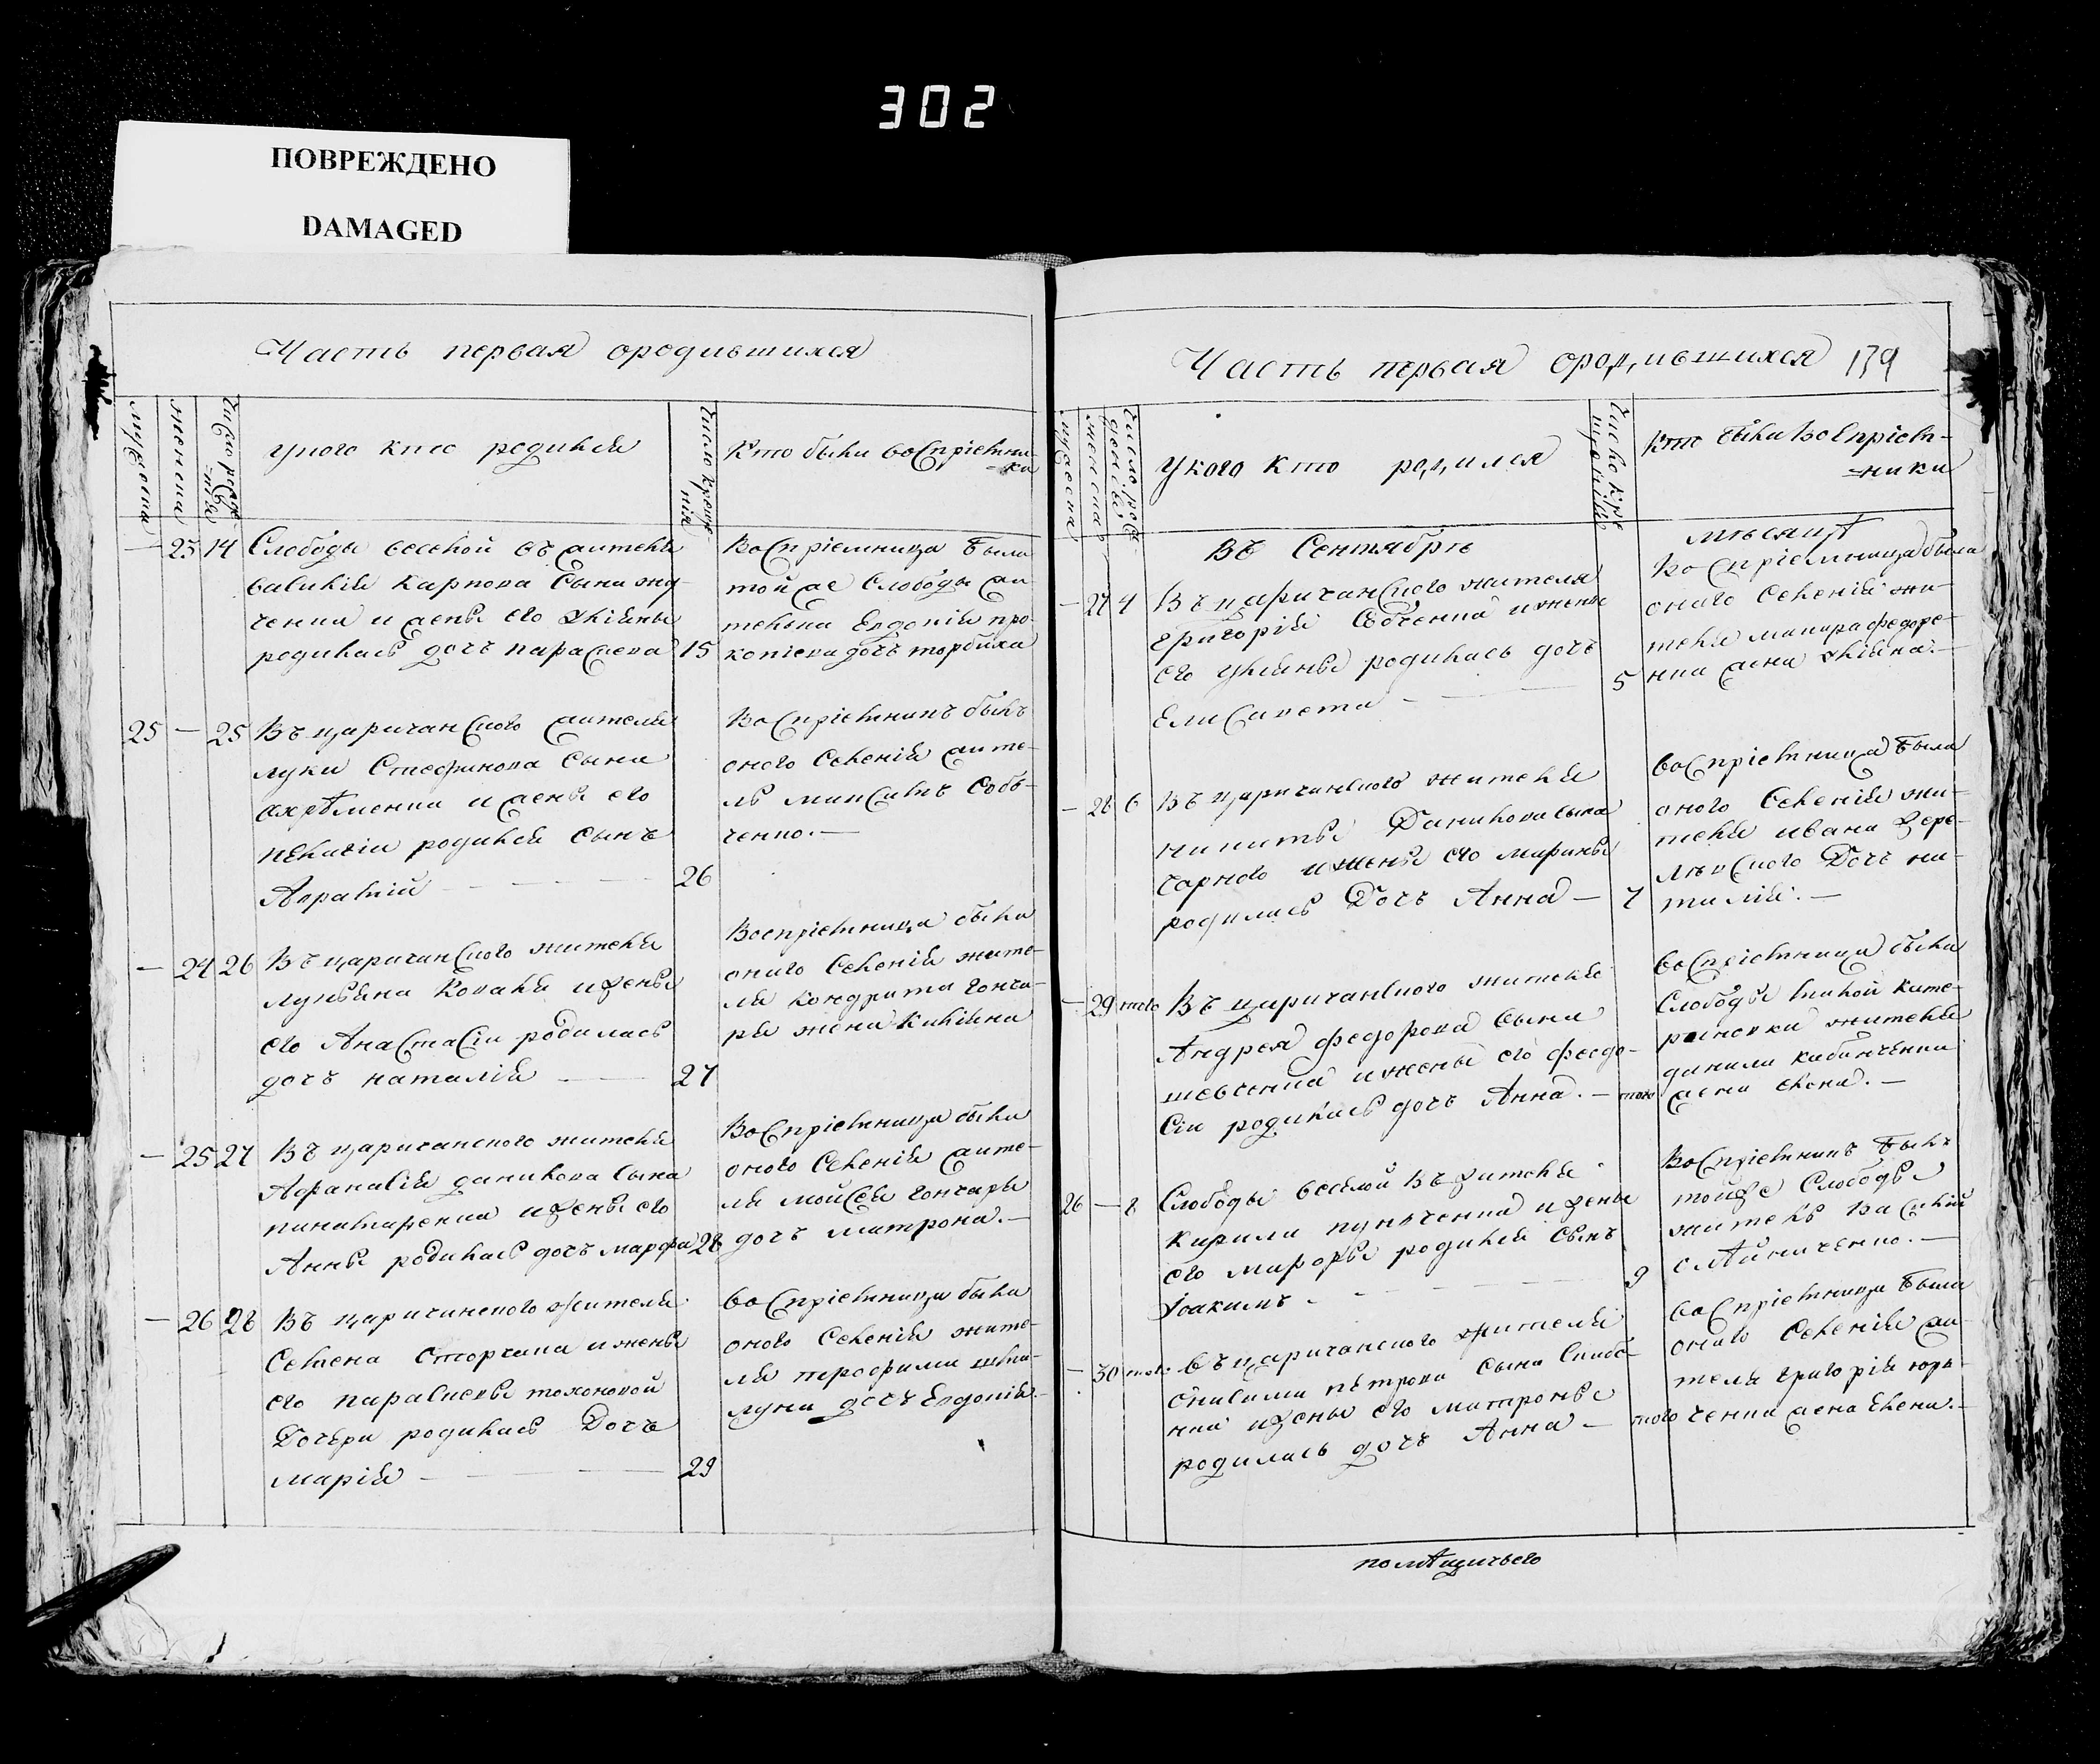 302
ПОВРЕЖДЕНО
DAMAGED
Часть первая ородившихся
мужеска
женска
Число рожде-
нія
укого кто родился
Число креще
нія
Кто были воспріемни-
=ки
— 23 14 Слободы веселой въ жителя
василія карпова сына
ченка и жены его Уліяны
родилась дочь параскева 15
Воспріемница была
той же Слободы жи
телька Евдокія про-
копіева дочь торбина
25 — 25 Въ царичанского жителя
луки Стефанова Сына
и жены его
пелагіи родился Сынъ
26
Воспріемникъ былъ
оного Селенія жите-
ль максимъ Собъ-
ченко.—
— 24 26 Въ царичанского жителя
лукьяна Коваля и жены
его Анастасіи родилась
дочь наталія — 27
Воспріемница была
оного Селенія жите-
ля кондрата гонча-
ря жена Киліяна
— 25 27 Въ царичанского жителя
Афанасія данилова Сына
и жены его
Анны родилась дочь марфа 28
Воспріемница была
оного Селенія жите-
ля мойсея гончаря
дочь матрона.—
— 26 28 Въ царичанского жителя
Семена и жены
его параскевы
Дочери родилась Дочь
марія — 29
воспріемница была
оного Селенія жите-
ля трофима шка-
луна дочь Евдокія.—
Часть первая ородившихся 139
мужеска
женска
Число рож
денія
Укого кто родился
Число кре
щенія
Кто были Воспріем-
=ники
Въ Сентябрѣ
мѣсяцѣ
— 27 4 Въ царичанского жителя
григорія Собченка и жены
его Уліяны родилась дочь
Елисавета — 5
Воспріемница была
оного Селенія жи-
теля макара федоре-
нка жена Уліяна.—
— 28 6 Въ царичанского жителя
никиты Данилова сына
чарного и жены его марины
родилась Дочь Анна — 7
воспріемница была
оного Селенія жи-
теля ивана
Дочь на-
талія.—
— 29 того Въ царичанского жителя
Андрея федорова Сына
шевченка и жены его феодо-
сіи родилась дочь Анна.— того
воспріемница была
Слободы кате-
риновки жителя
данила кабанченка
жена Елена.—
26 — 8 Слободы веселой Въ жителя
кирила и жены
его марфы родился Сынъ
Іоакимъ — 9
Воспріемникъ былъ
тойже Слободы
житель василій
олѣйниченко.—
— 30 того Въ царичанского жителя
петрова сына
нка и жены его матроны
родилась дочь Анна — того
воспріемница была
оного Селенія жи-
теля григорія юрь-
ченка жена Елена.—
помѣщичьего